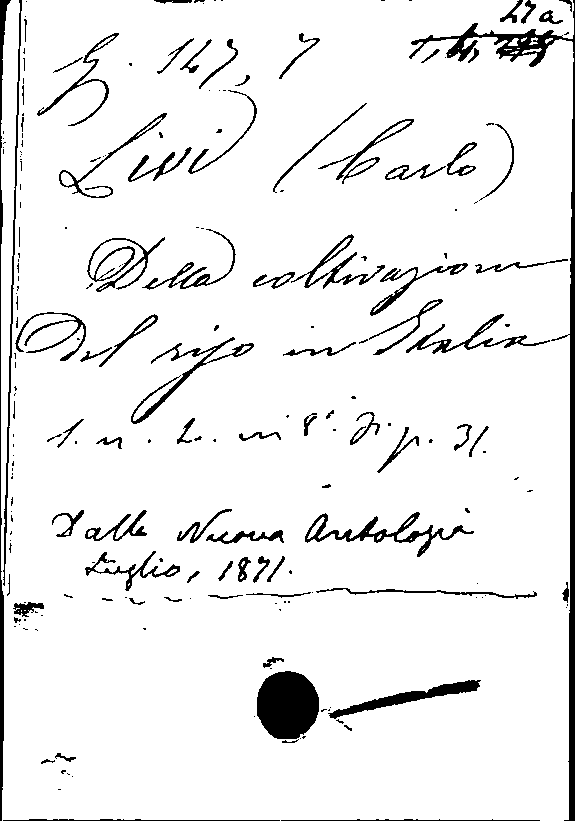 27a
G. 147, 7
Livi (Carlo)
Della coltivazione
del riso in Italia
s. n. t. in 8º. di p. 31.
Dalla Nuova Antologia
Luglio, 1871.